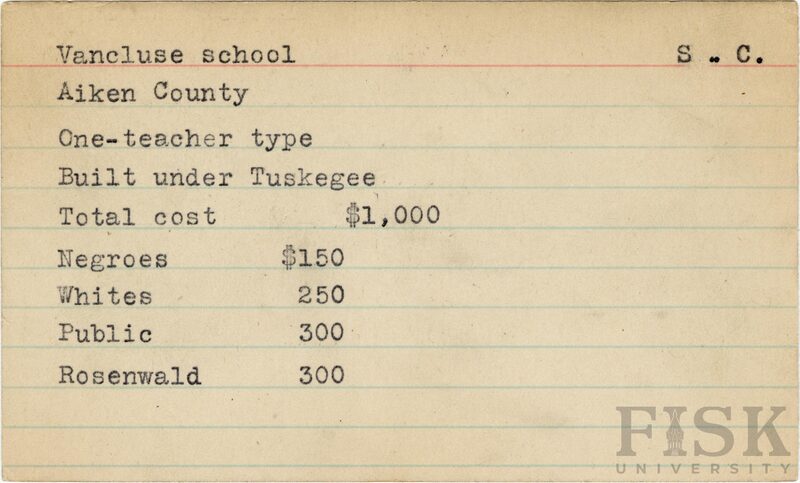 Vancluse school S.. C.
Aiken County
One-teacher type
Built under Tuskegee
Total cost $1,000
Negroes $150
Whites 250
Public 300
Rosenwald 300
FISK
UNIVERSITY